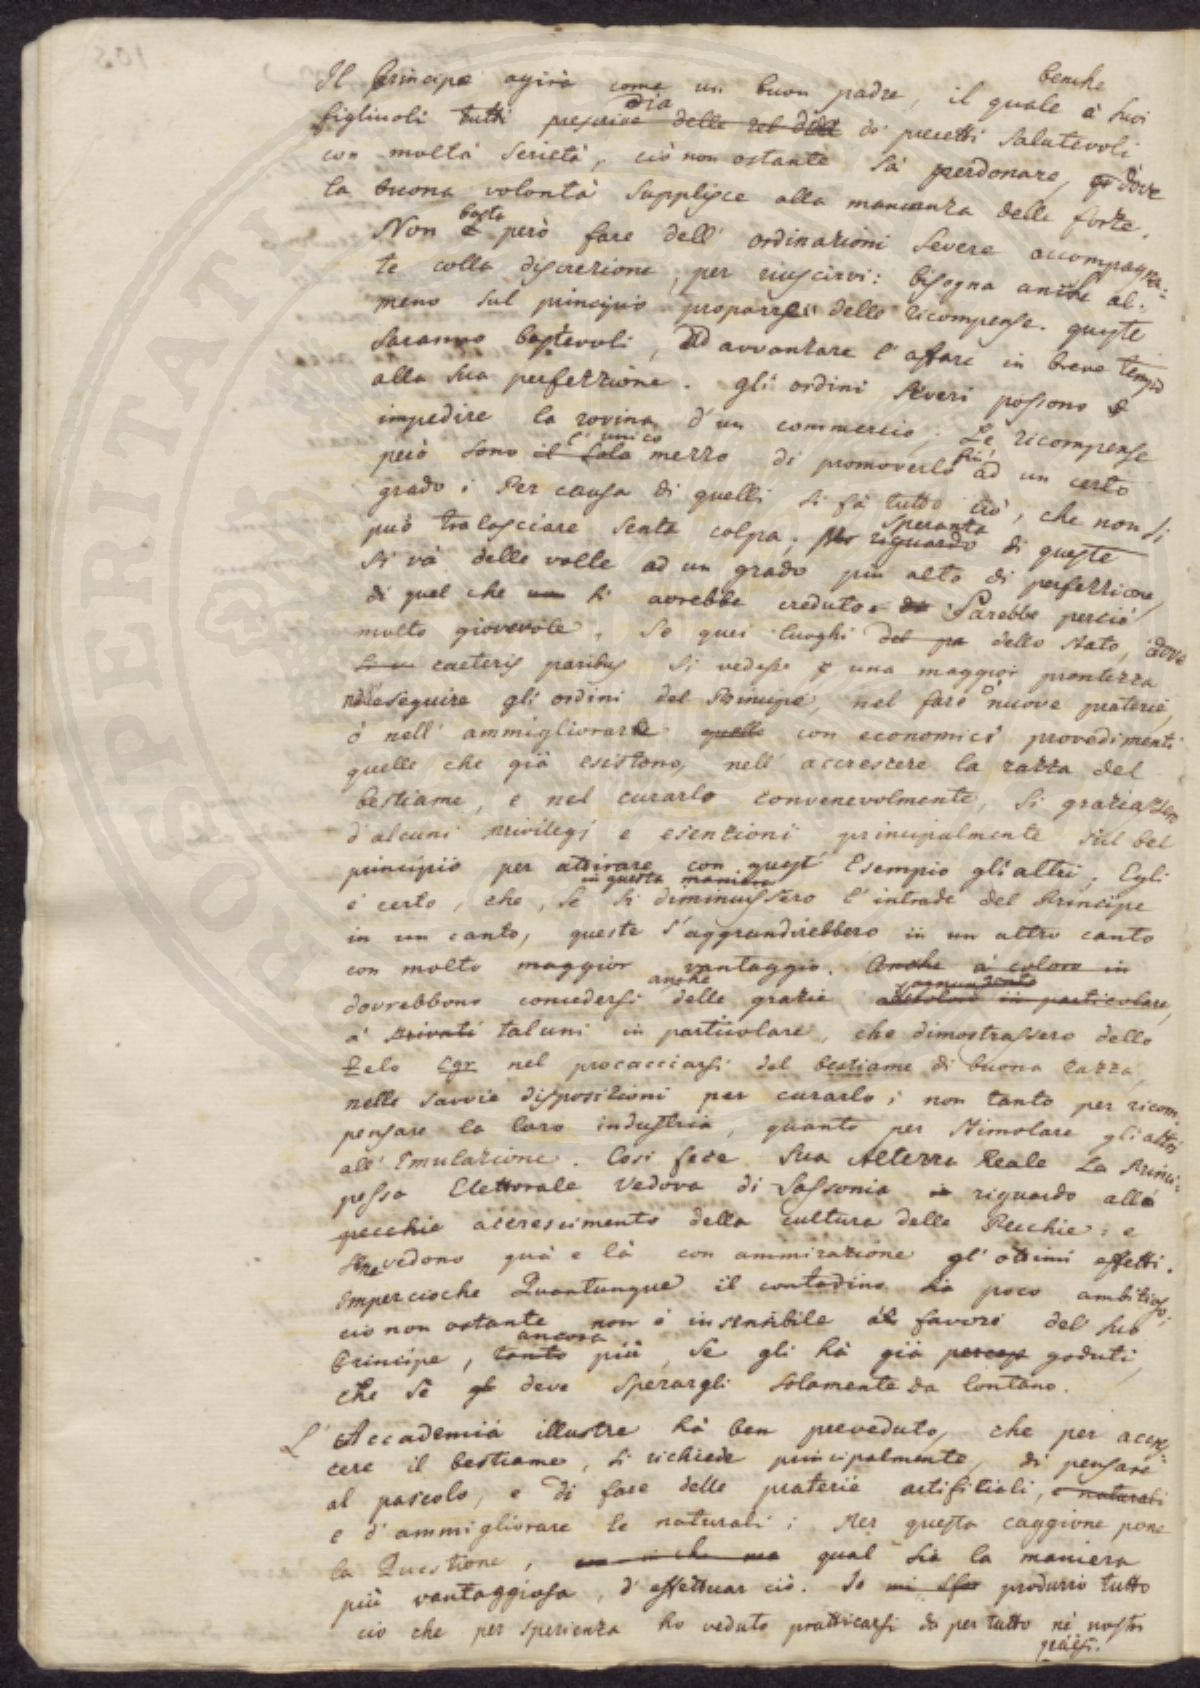 Il Principe agirà come un buon padre, il quale benche à suoi
figliuoli tutti prescrive delle dia dó precetti salutevoli
con molta serietà, ciò non ostante sà perdonare, dove
la buona volontà supplisce alla mancanza delle forze.
Non basta però fare dell' ordinazioni severe accompagna=
te colla discrezione, per riuscirvi: bisogna anche al=
meno sul principio proporre delle ricompense. queste
saranno bastevoli, ad avvanzare l'affare in breve tempo
alla sua perfezzione. gli ordini severi possono
impedire la rovina d'un commercio; Le ricompense
però sono il solo l'unico mezzo di promoverlo fin' ad un certo
grado; Per causa di quelli si fà tutto ciò, che non si
può tralasciare senza colpa; per riguardo speranza di queste
si và delle volte ad un grado più alto di perfezzione,
di quel che si avrebbe creduto. Sarebbe perciò
molto giovevole, se quei luoghi dello stato, dove
caeteris paribus si vedesse una maggior prontezza
nell'eseguire gli ordini del Principe, nel fare nuove praterie,
ó nell' ammigliorare quelle con economici provedimenti
quelle che già esistono, nell' accrescere la razza del
bestiame, e nel curarlo convenevolmente, si graziassero
d'alcuni privilegj e esenzioni principalmente sul bel
principio per attirare con quest' Esempio gli altri. Egli
è certo, che, se in questa maniera si diminuissero l'intrade del Principe
in un canto, queste s'aggrandirebbero in un altro canto
con molto maggior vantaggio. Anche à coloro in
dovrebbono concedersi anche delle grazie in particolare,
à privati taluni in particolare, che dimostrassero dello
Zelo Egr. nel procacciarsi del bestiame di buona razza,
nelle savvie disposizioni per curarlo; non tanto per ricom=
pensare la loro industria, quanto per stimolare gli altri
all' Emulazione. Così fece Sua Altezza Reale La Princi=
pessa Elettorale Vedova di Sassonia in riguardo alla
pecchie accrescimento della cultura delle Pecchie; e
se ne vedono quà e là con ammirazione gl' ottimi effetti.
Impercioche Quantunque il contadino sia poco ambitioso;
ciò non ostante non è insensibile ai favori del suo
Principe, tanto ancora più, se gli hà già goduti,
che se deve sperargli solamente da lontano.
L' Accademia illustre hà ben preveduto, che per accres=
cere il bestiame, si richiede principalmente, di pensare
al pascolo, e di fare delle praterie artifitiali, e naturali
e d'ammigliorare le naturali; Per questa caggione pone
la Questione, qual sia la maniera
più vantaggiosa, d'effettuar ciò. Io produrrò tutto
ciò che per sperienza ho veduto pratticarsi da per tutto nè nostri
paesi.